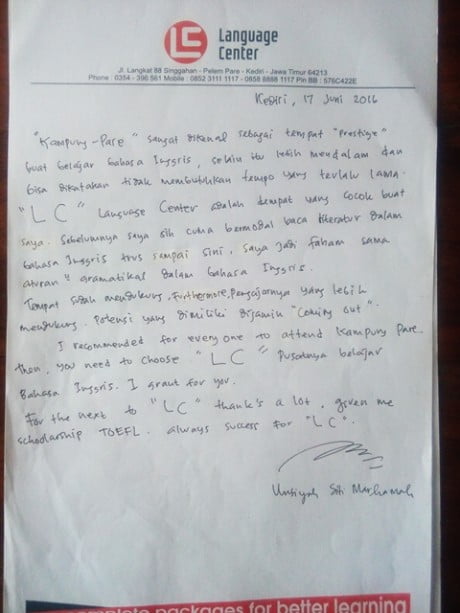 LC
Language
Center
Jl. Langkat 88 Singgahan - Pelem Pare - Kediri - Jawa Timur 64213
Phone : 0354 - 396 561 Mobile : 0852 3111 1117 - 0858 8888 1117 Pin BB : 576C422E
Kediri, 17 Juni 2016
"Kampung-Pare" sangat dikenal sebagai tempat "Prestige"
buat belajar bahasa Inggris, selain itu lebih mendalam dan
bisa dikatakan tidak membutuhkan tempo yang terlalu lama.
"LC" Language Center adalah tempat yang cocok buat
saya. Sebelumnya saya sih cuma bermodal baca literatur dalam
bahasa Inggris trus sampai sini, saya jadi faham sama
aturan" gramatikal dalam bahasa Inggris.
Tempat sudah mendukung, Furthermore, Pengajarnya yang lebih
mendukung. Potensi yang dimiliki dijamin "Coming out".
I recommended for every one to attend Kampung Pare.
then, you need to choose "LC" pusatnya belajar
Bahasa Inggris. I graut for you.
For the next to "LC" thank's a lot, given me
scholarship TOEFL. always success for "LC".
Siti
packages for better learning